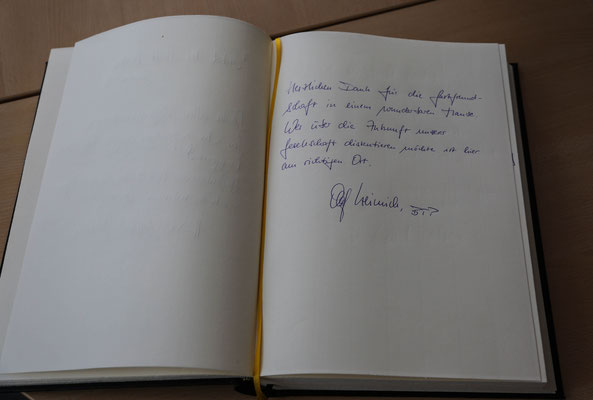 Herzlichen Dank für die Gastfreund-
schaft in einem wunderbaren Hause.
Wer über die Zukunft unserer
Gesellschaft diskutieren möchte ist hier
am richtigen Ort.